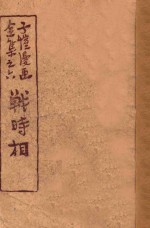 子愷漫画
全集之六
戰時相